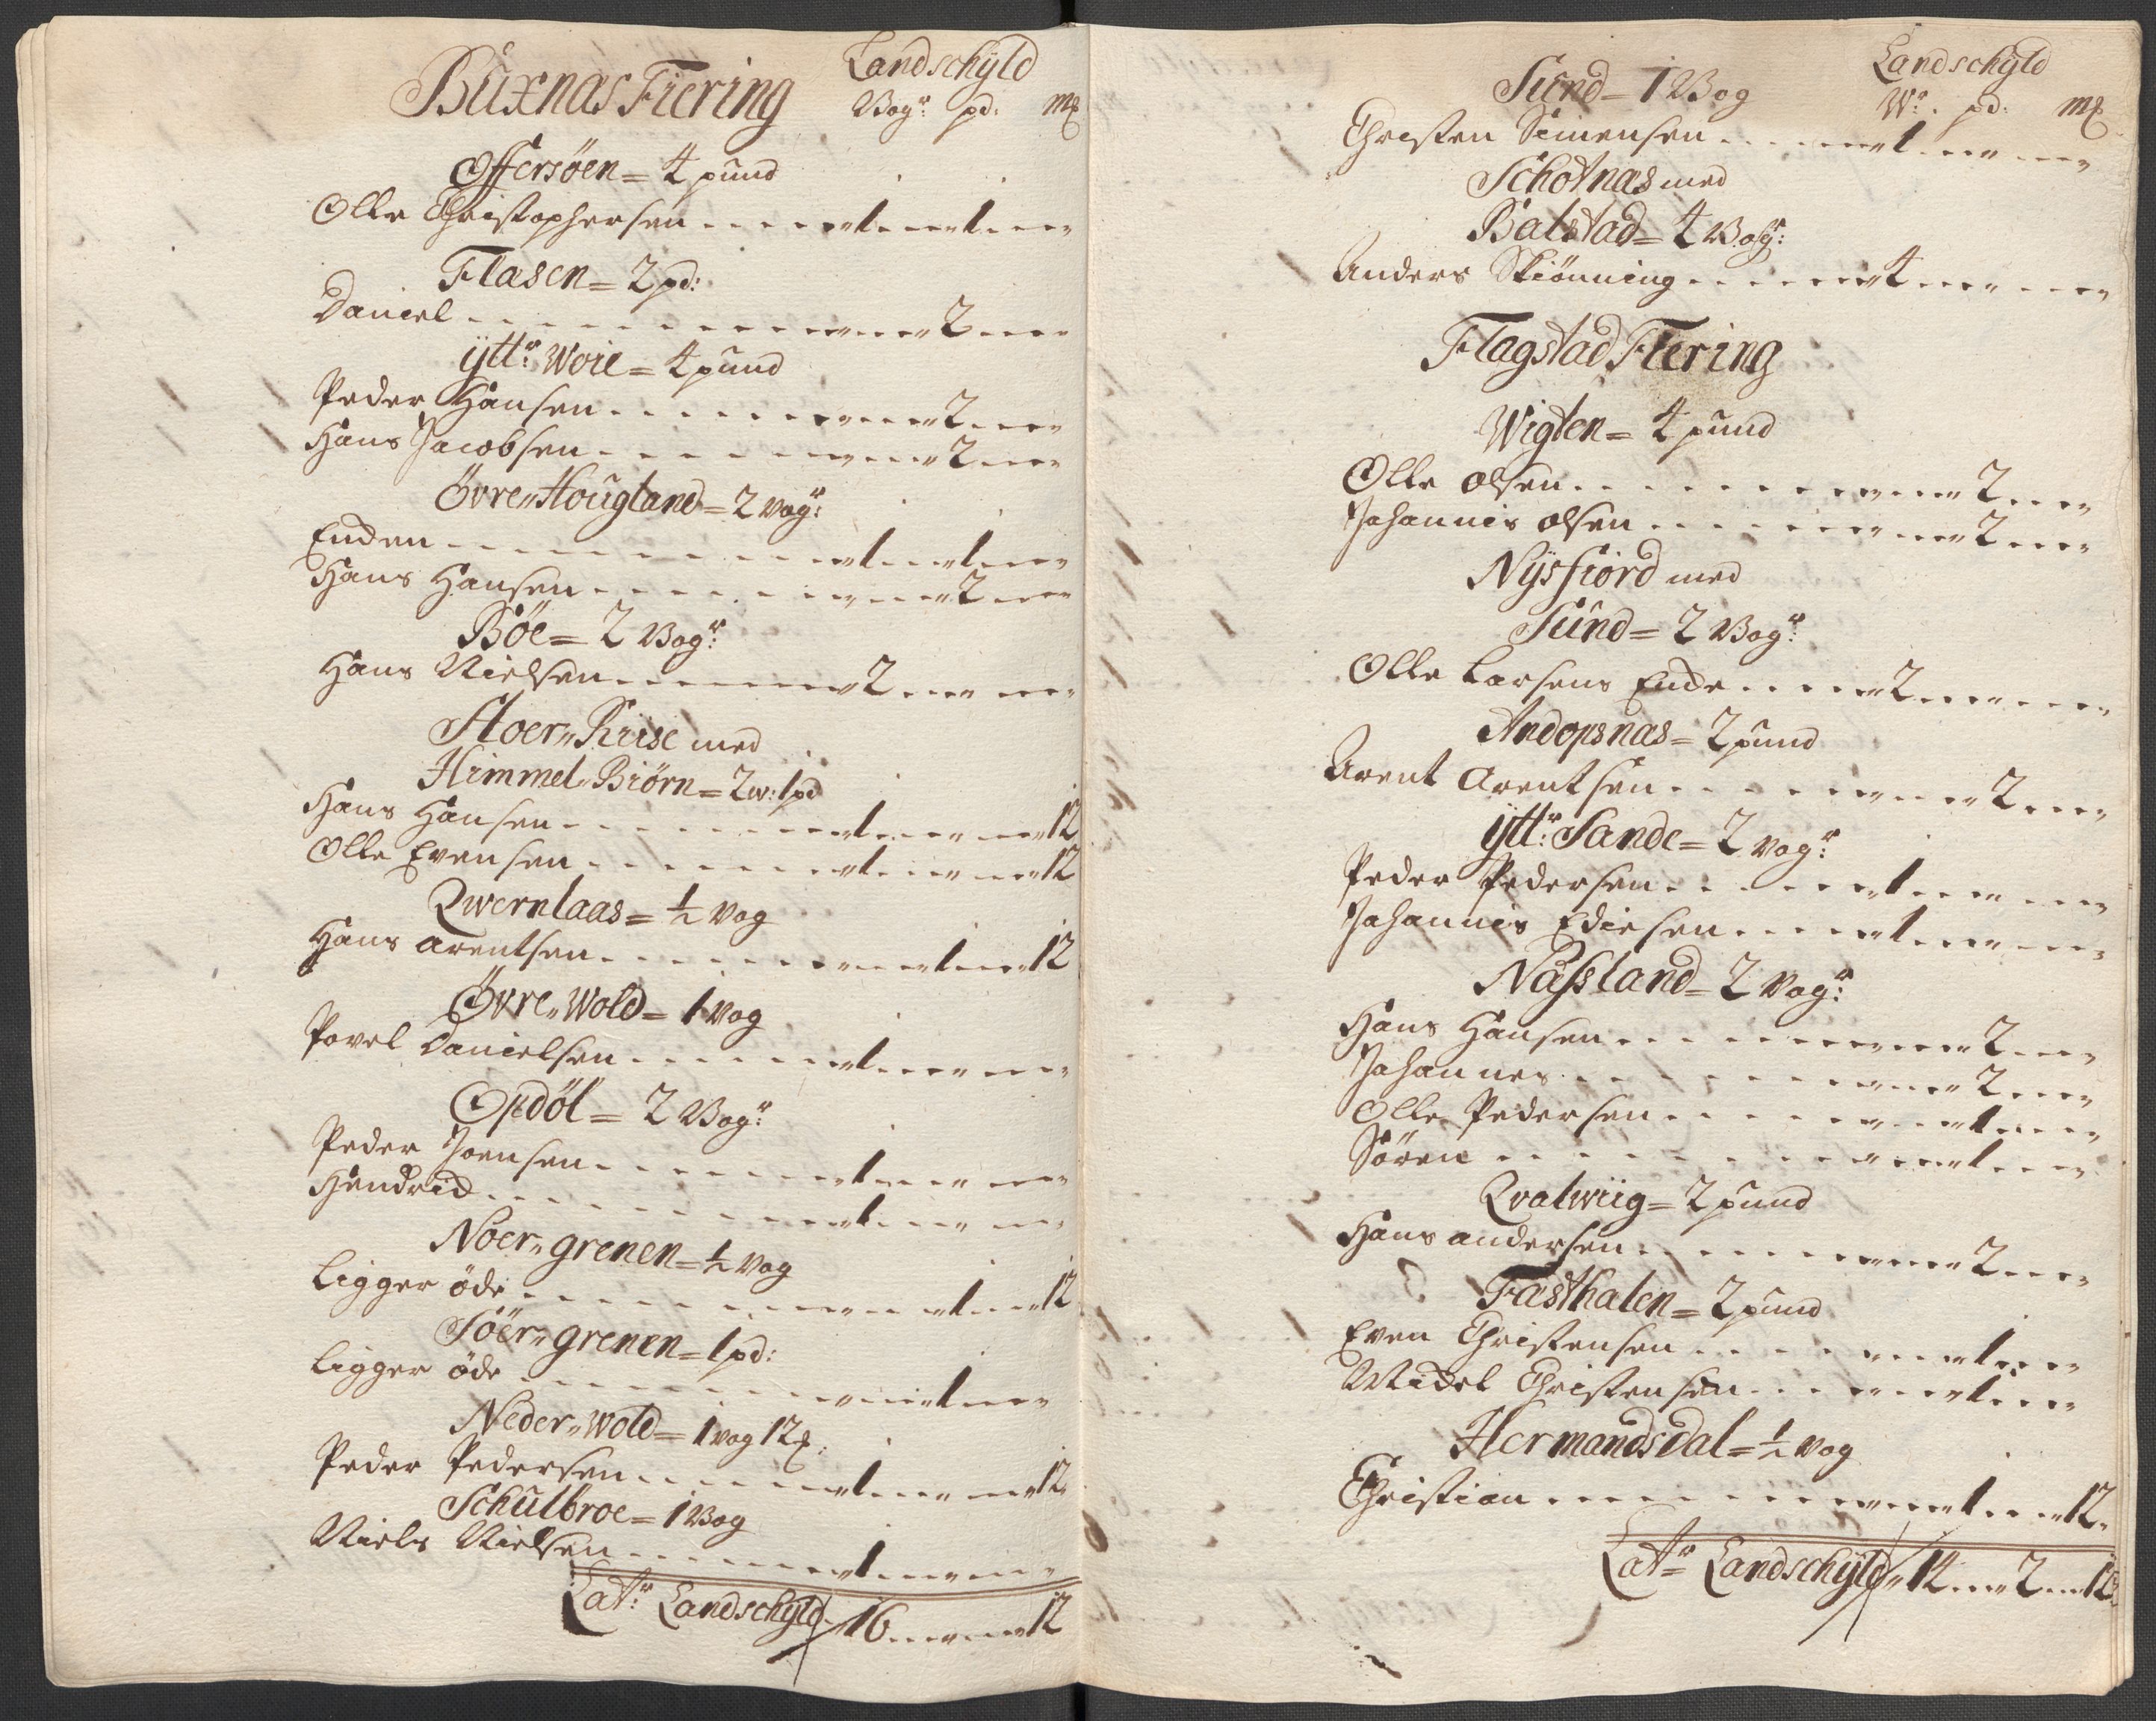 Buxnas Fiering Landschÿld
Vog.r pd: m{
Offersöen = 4 pund
Olle Christophersen . . . . . 1 . . . 1 . . .
Flasen = 2 pd:
Daniel . . . . . . . . . . 2 . . .
ÿtt.r Woie = 4 pund
Peder Hansen . . . . . . . . 2 . . .
Hans Jacobsen . . . . . . . 2 . . .
Övre Hougland = 2 vog.r
Enden . . . . . . . . 1 . . . 1 . . .
Hans Hansen . . . . . . . 2 . . .
Böe = 2 Vog.r
Hans Nielsen . . . . . . 2 . . . . . .
Stoer Riise med
Himmel Biörn = 2 w: 1 pd
Hans Hansen . . . . . . . 1 . . . . . . 12
Olle Evensen . . . . . . . 1 . . . . . . 12
Qwernlaas = ½ vog
Hans Arentsen . . . . . . . . . 1 . . . 12
Övre Wold = 1 vog
Povel Danielsen . . . . . . 1 . . . . . .
Opdöl = 2 Vog.r
Peder Joensen . . . . . . . 1 . . . . . .
Hendrid . . . . . . . . 1 . . . . . .
Noer grenen = ½ vog
Ligger öde . . . . . . . . . . 1 . . . 12
Söer grenen = 1 pd:
Ligger öde . . . . . . . . . . 1 . . .
Neder Wold = 1 vog 12 {:
Peder Pedersen . . . . . . 1 . . . . . . 12
Schulbroe = 1 Vog
Niels Nielsen . . . . . . 1 . . . . . .
Lat.r Landschÿld 16 . . . . . . 12
Sund = 1 Vog Landschyld
W.r . pd: m{
Christen Simensen . . . . . . 1 . . . . . .
Schotnas med
Balstad = 4 Vog.r
Anders Skiönning . . . . . . 4 . . . . . .
Flagstad Fiering
Wigten = 4 pund
Olle Olsen . . . . . . . . . 2 . . .
Johannis Olsen . . . . . . . . 2 . . .
Nÿsfiord med
Sund = 2 Vog.r
Olle Larsens Enke . . . . . 2 . . . . . .
Andopsnas = 2 pund
Arent Arentsen . . . . . . . . 2 . . .
ÿtt.r Sande = 2 vog.r
Peder Pedersen . . . . . . 1 . . . . . .
Johannis Ediesen . . . . . 1 . . . . . .
Nassland = 2 Vog.r
Hans Hansen . . . . . . . . . 2 . . .
Johannes . . . . . . . . . . 2 . . .
Olle Pedersen . . . . . . . . 1 . . .
Sören . . . . . . . . . . 1 . . .
Qvalwiig = 2 pund
Hans Andersen . . . . . . . . 2 . . .
Fasthalen = 2 pund
Even Christensen . . . . . . . 1 . . .
Mickel Christensen . . . . . . 1 . . .
Hermandsdal = ½ vog
Christian . . . . . . . . . . 1 . . . 12
Lat.r Landschÿld 14 . . . 2 . . . 12